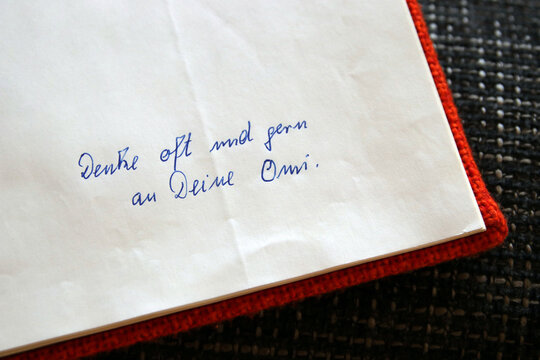 Denke oft und gern
an Deine Omi.